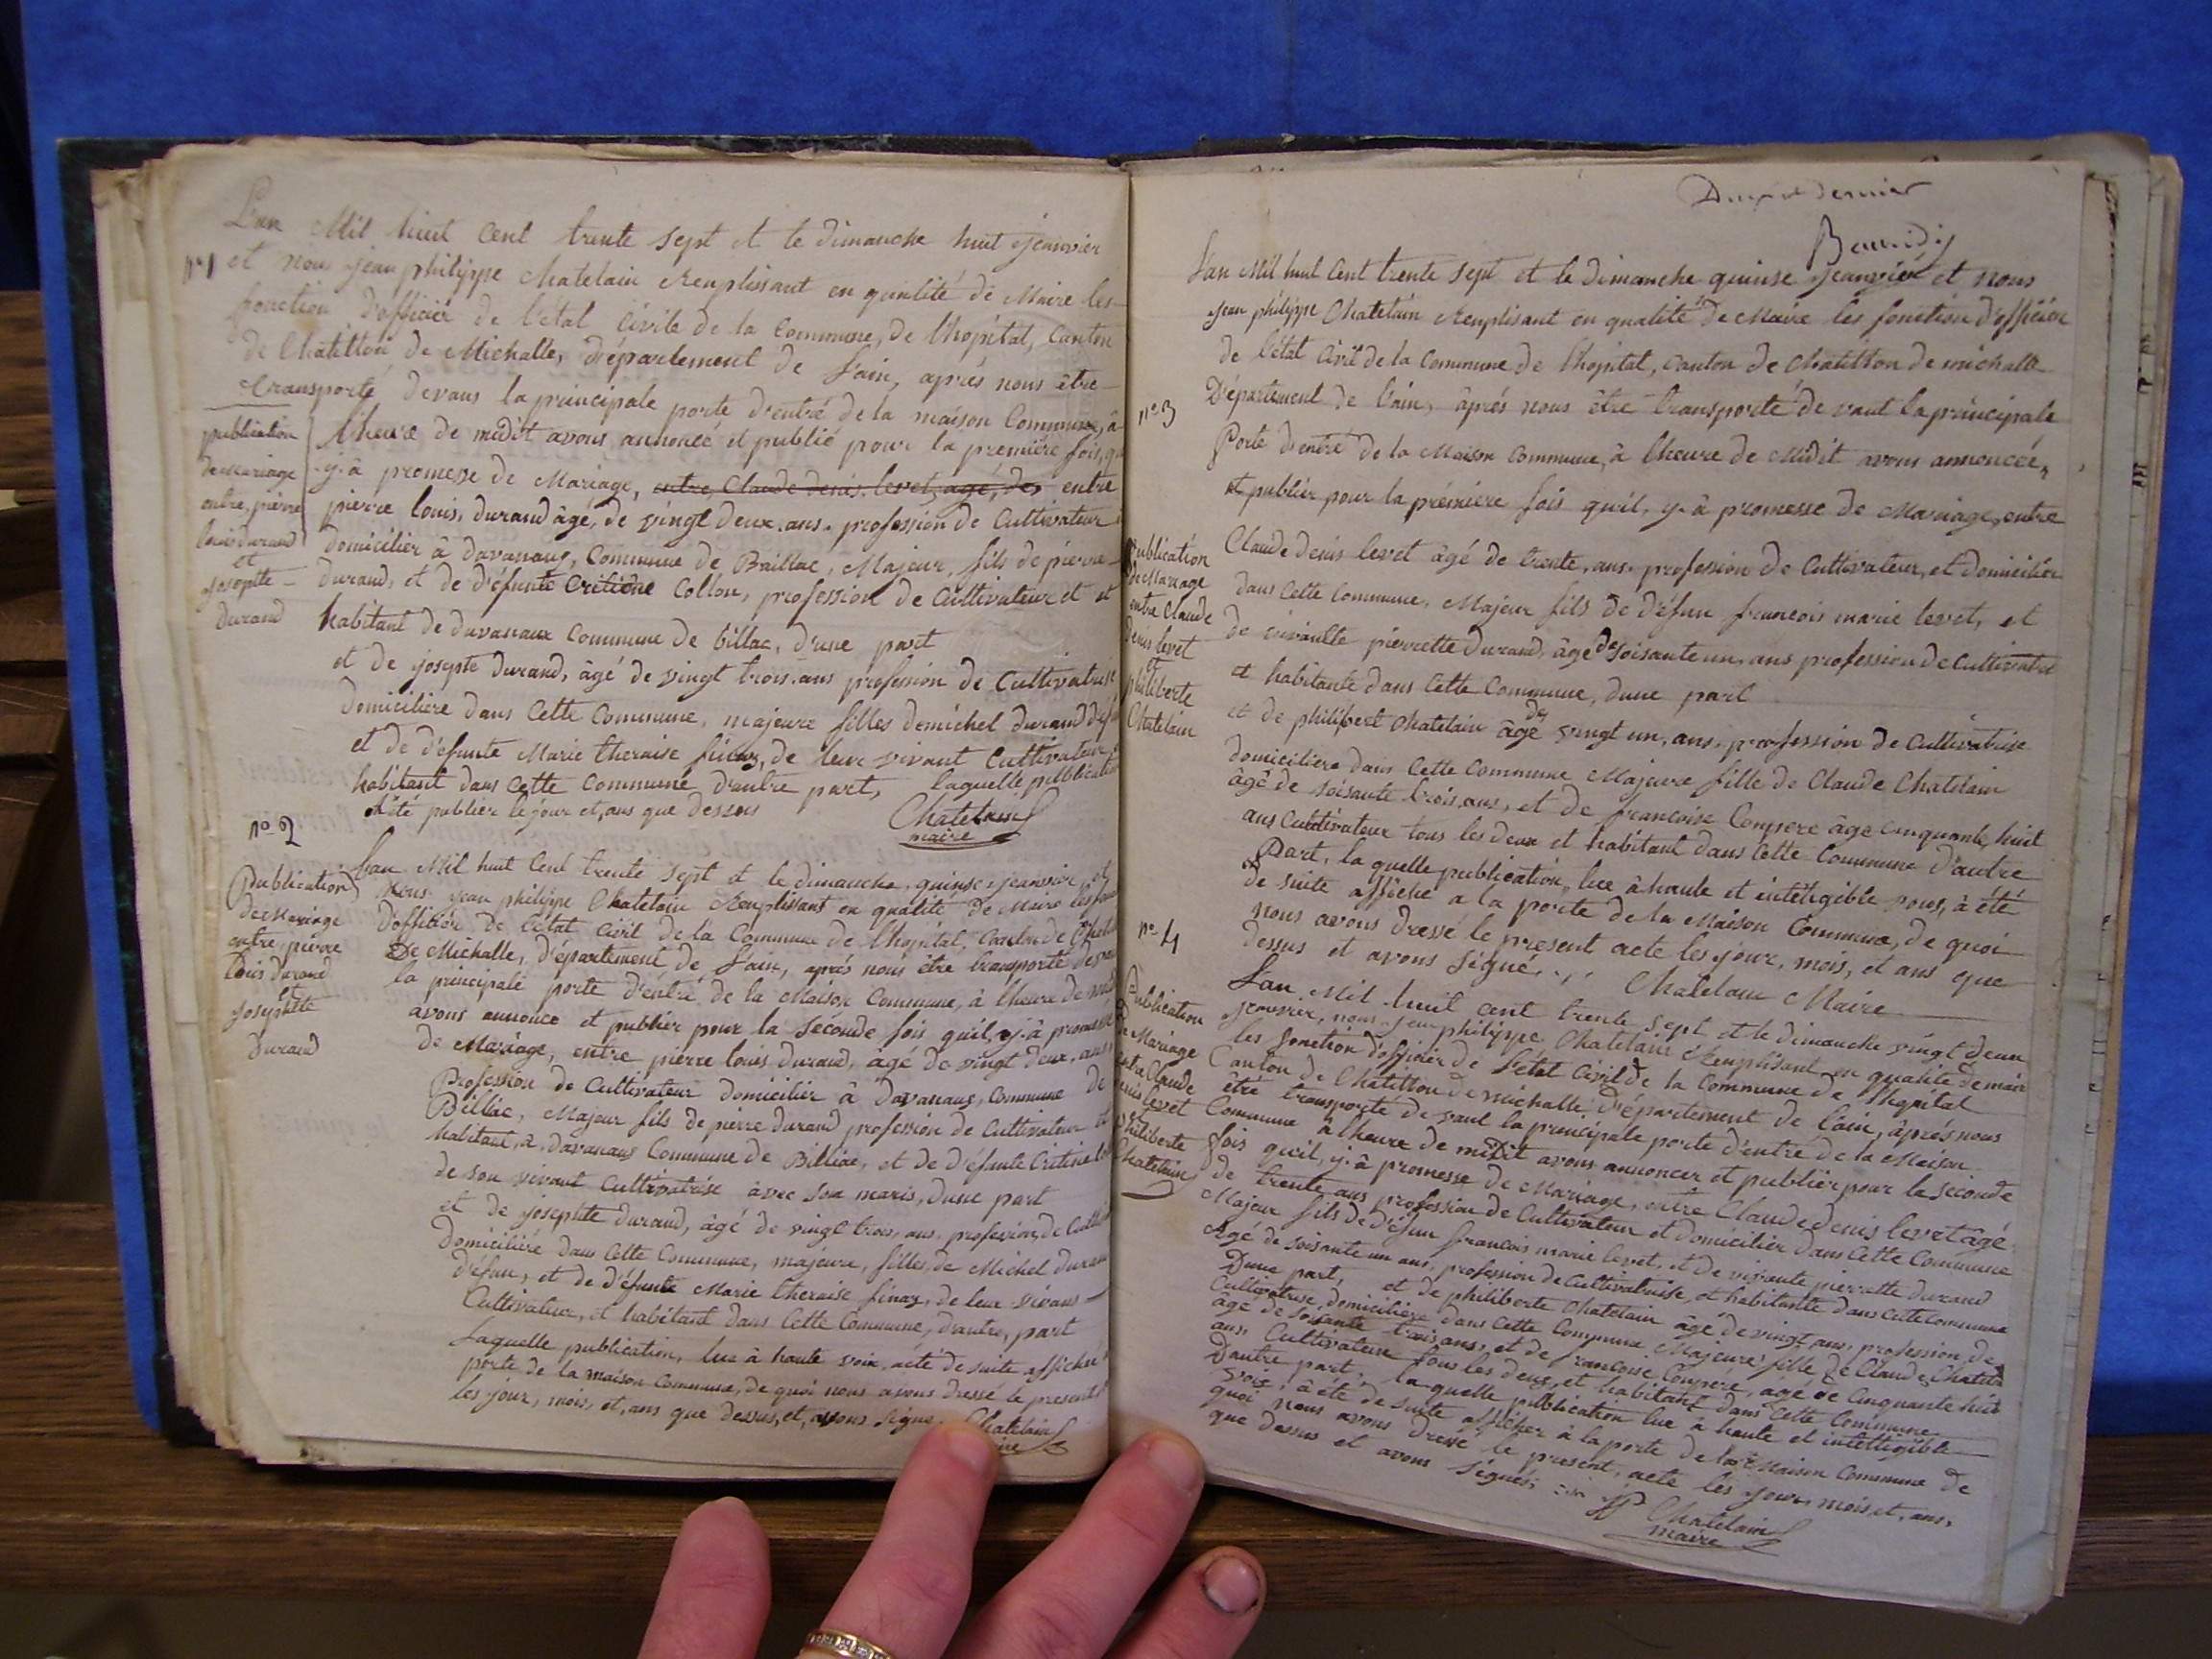 L'an Mil huit cent trente sept et le dimanche huit Jeanvier
n°1
et nous jean philippe Chatelain Remplissant en qualité de Maire les
fonction d'officier de l'état Civile de la Commune, de l'hopital, Canton
de Châtillon de Michalle, Département de L'ain, aprés nous être
transporté devans la principale porte d'entré de la maison Commune, à
l'heure de midit avons annoncé et publié pour la premiére fois, qu
y à promesse de Mariage, entre Claude denis levet, agé, de entre
pierre louis, durand âgé, de vingt deux. ans. profession de Cultivateur
domicilier à davanaux, Commune de Baillac, Majeur, fils de pierre
durand, et de d'éfunte Critiéne Collon, profession de Cultivateur et et
habitant de davanaux Commune de billac, d'une part
et de josepte durand, âgé de vingt trois. ans profession de Cultivatrise
domiciliére dans Cette Commune, majeure filles de michel durand défu
et de d'éfunte Marie theraise finas, de leur vivant Cultivateur
habitant dans cette Commune d'autre part, laquelle publication
à été publier le jour et, ans que dessus
Chatelain
maire
publication
de Mariage
entre, pierre
louis durand
et
josepte
durand
n° 2
L'an Mil huit Cent trente sept et le dimanche, quinse, jeanvier, et
Nous jean philippe Chatelain Remplissant en qualité de Maire les fonc
D'officiér de l'état Civil de la Commune de l'hopital, Canton de Chatil
De Michalle, D'épartement de L'ain, aprés nous être transporté devan
la principale porte d'entré, de la Maison Commune, à l'heure de mid
avons annonce et publier pour la séconde fois quil, y à promesse
de Mariage, entre pierre louis durand, âgé de vingt deux. ans
Profession de Cultivateur domicilier à davanaux, Commune de
Billiac, Majeur fils de pierre durand profession de Cultivateur et
habitant, à davanaux Commune de Billiac, et de d'éfunte Critine Col
de son vivant Cultivatrise avec son maris, d'une part
et de josephte durand, âgé de vingt trois, ans, profession, de Culti
Domiciliére dans Cette Commune, majeure, filles, de Michel duran
d'éfun, et de d'éfunte Marie theraise finas, de leur vivans
Cultivateur, et habitant dans Cette Commune, d'autre, part
Laquelle publication, lue à haute voix, à été de suite affiché
porte de la maison Commune, de quoi nous avons dressé le present
les jour, mois, et, ans que dessus, et, avons signe.
Chatelain
Publication
de Mariage
entre, pierre
louis durand
et
josephte
durand
Deux et dernier
L'an Mil huit Cent trente sept et le dimanche quinse Jeanvier et nous
jean philippe Chatelain Remplisant en qualité de Maire les fonction d'officier
de l'état Civil de la Commune de l'hopital, Canton de Chatillon de michalle
Département de l'ain, âprés nous être transporté de vant la principale
n° 3
Porte d'entré de la Maison Commune, à l'heure de Midit avons annoncée,
et publier pour la prémiere fois quil, y à promesse de Mariage, entre
Claude denis levet âgé de trente, ans. profession de Cultivateur, et domicilier
dans Cette Commune, Majeur fils de d'éfun francois marie levet, et
de vivante pierrette durand, âgé de soisante un, ans profession de Cultivatri
et habitante dans Cette Commune, d'une part
et de philibert Chatelain âgé de vingt un, ans. profession de Cultivatrise
domiciliere dans Cette Commune Majeure fille de Claude Chatelain
âgé de soisante trois, ans, et de francoise Compere âge cinquante, huit
ans Cultivateur tous les deux et habitant dans Cette Commune d'autre
Part, la quelle publication, lue à haute et inteligible voix, à été
de suite affiché a la porte de la Maison Commune, de quoi
nous avons dressé le present acte les jour, mois, et ans que
dessus et avons signé
Chatelain Maire
Publication
de Mariage
entre Claude
denis levet
et
philiberte
Chatelain
n° 4
L'an Mil huit cent trente sept et le dimanche vingt deux
jeanvier, nous jean philippe Chatelain Remplisant en qualité de mair
les fonction d'officier de l'état Civil de la Commune de l'hopital
Canton de Chatillon de michalle, d'épartement de l'ain, âprés nous
être transporté de vant la principale porte d'entré de la Maison
Commune à l'heure de midit avons annoncer et publier pour la seconde
fois quil, y à promesse de Mariage, entre Claude denis levet âgé
de trente ans profession de Cultivateur et domicilier dans Cette Commune
Majeur fils de D'éfun francois marie levet, et de vivante pierrette durand
Agé de soisante un ans, profession de Cultivatrise, et habitante dans Cette Commune
D'une part, et de philiberte Chatelain âgé de vingt ans, profession de
Cultivatrise, domiciliere dans Cette Commune Majeure fille de Claude Chatela
âgé de soisante trois ans, et de francoise Compére, âgé de Cinquante huit
ans, Cultivateur tous les deux, et habitant dans Cette Commune
D'autre part, laquelle publication lue à haute et intelligible
voix, à été de suite afficher à la porte de la Maison Commune de
quoi nous avons dressé le present, acte les jour, mois, et, ans,
que dessus et avons signés,
JP Chatelain
maire
Publication
de Mariage
entre Claude
denis levet
philiberte
Chatelain